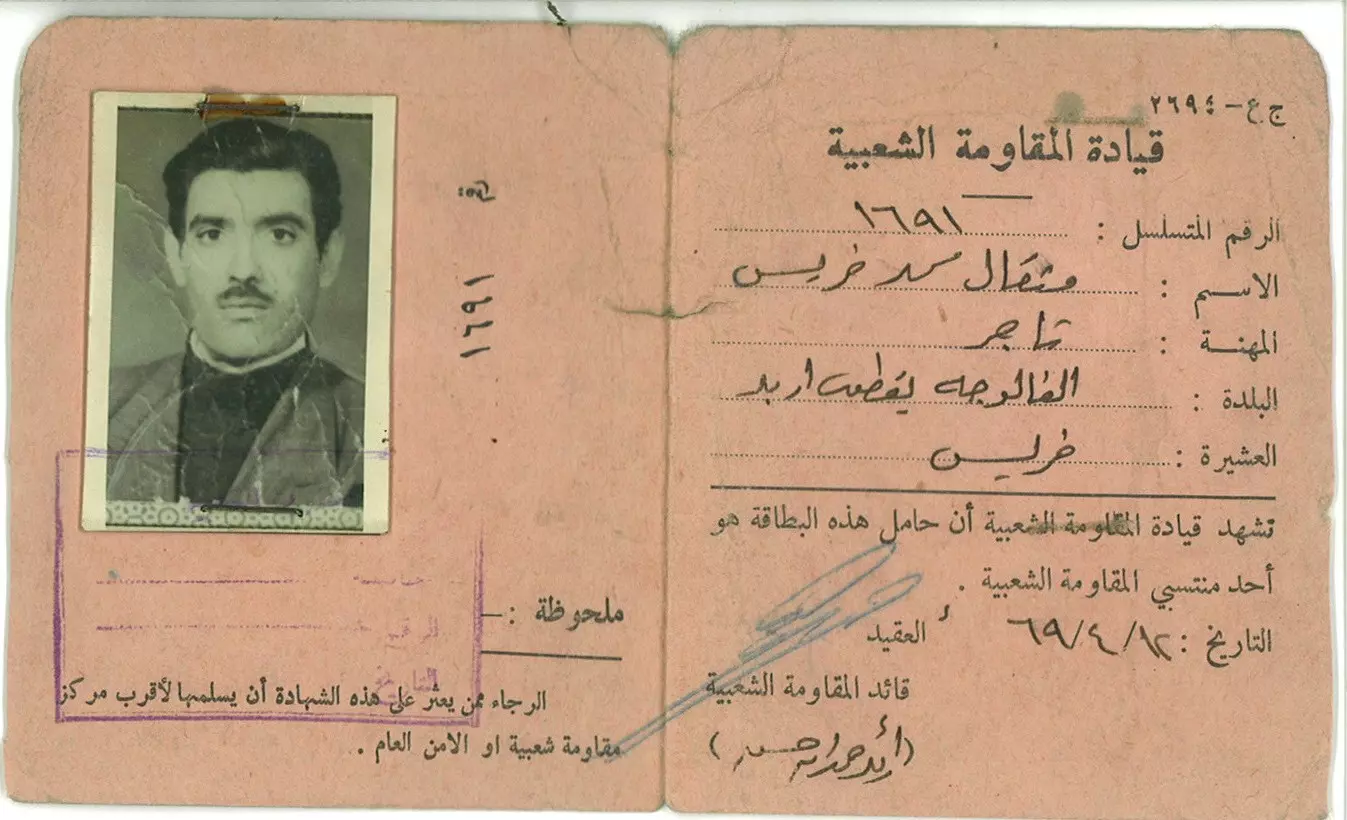 ج ع – ٢٦٩٤
قيادة المقاومة الشعبية
الرقم المتسلسل : ١٦٩١
الاسم : مثقال محمد خريس
المهنة : تاجر
البلدة : الفالوجه اربد
العشيرة : خريس
تشهد قيادة المقاومة الشعبية أن حامل هذه البطاقة هو
أحد منتسبي المقاومة الشعبية .
التاريخ : ١٢/٤/٦٩
العقيد
قائد المقاومة الشعبية
١٦٩١
ملحوظة :–
الرجاء ممن يعثر على هذه الشهادة أن يسلمها لأقرب مركز
مقاومة شعبية او الامن العام .
الرقم
التاريخ